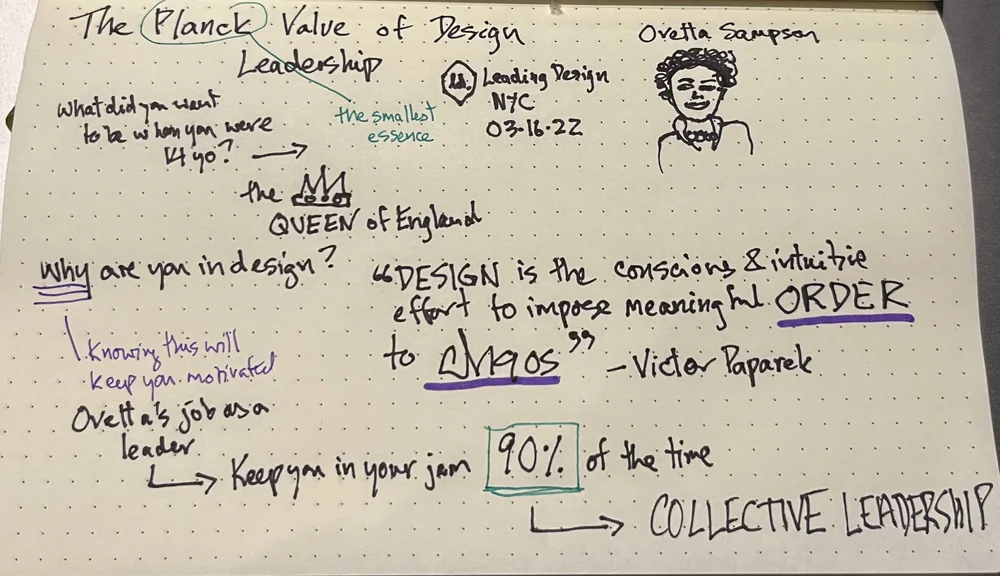 The Planck Value of Design
Leadership
Ovetta Sampson
Leading Design
NYC
03·16·22
the smallest
essence
What did you want
to be when you were
14 yo?
the
QUEEN of England
Why are you in design?
Knowing this will
keep you motivated
"DESIGN is the conscious & intuitive
effort to impose meaningful ORDER
to CHAOS"
- Victor Paparek
Ovetta's job as a
leader
Keep you in your jam 90% of the time
COLLECTIVE LEADERSHIP